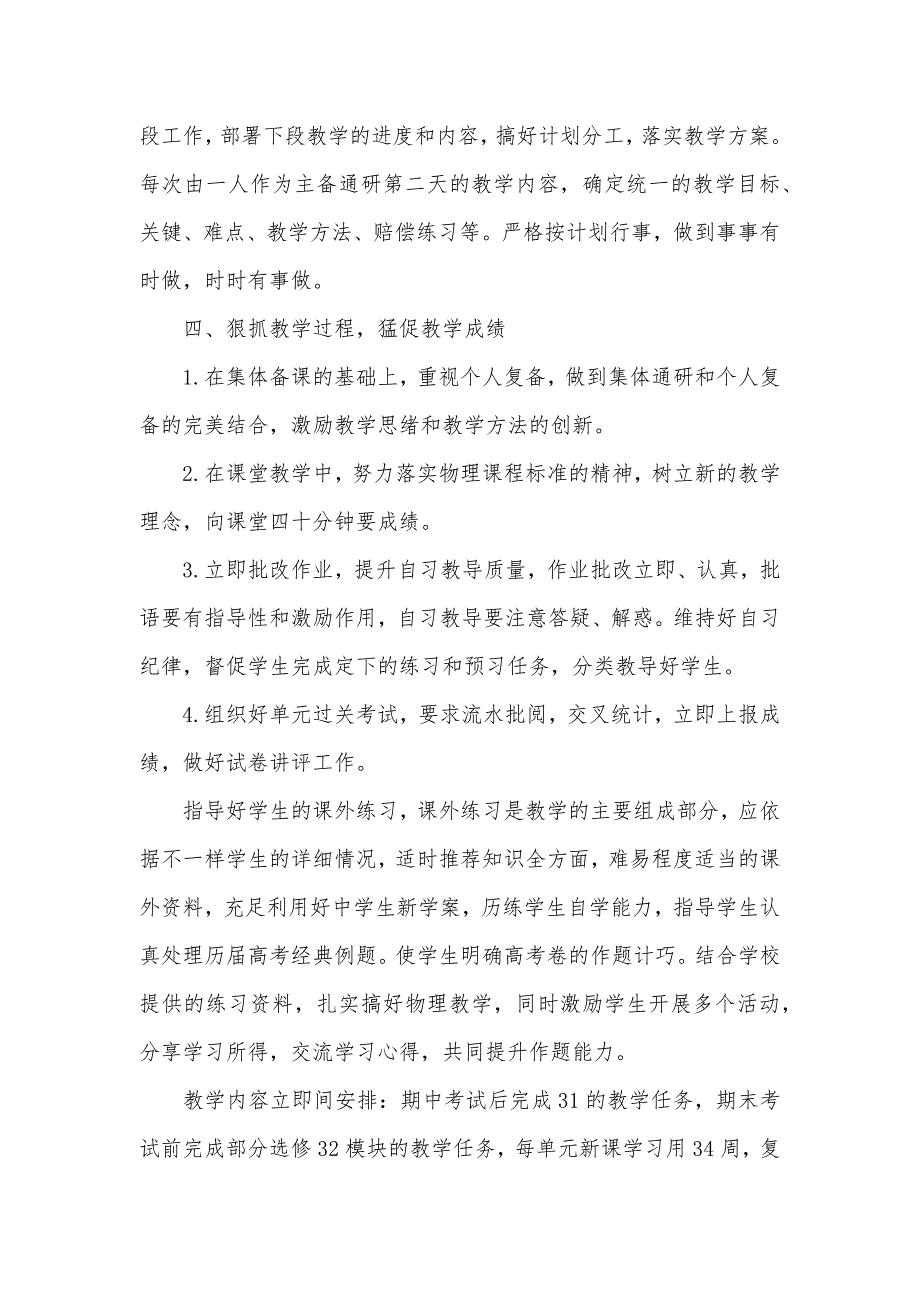 段工作，部署下段教学的进度和内容，搞好计划分工，落实教学方案。
每次由一人作为主备通研第二天的教学内容，确定统一的教学目标、
关键、难点、教学方法、赔偿练习等。严格按计划行事，做到事事有
时做，时时有事做。
四、狠抓教学过程，猛促教学成绩
1.在集体备课的基础上，重视个人复备，做到集体通研和个人复
备的完美结合，激励教学思绪和教学方法的创新。
2.在课堂教学中，努力落实物理课程标准的精神，树立新的教学
理念，向课堂四十分钟要成绩。
3.立即批改作业，提升自习教导质量，作业批改立即、认真，批
语要有指导性和激励作用，自习教导要注意答疑、解惑。维持好自习
纪律，督促学生完成定下的练习和预习任务，分类教导好学生。
4.组织好单元过关考试，要求流水批阅，交叉统计，立即上报成
绩，做好试卷讲评工作。
指导好学生的课外练习，课外练习是教学的主要组成部分，应依
据不一样学生的详细情况，适时推荐知识全方面，难易程度适当的课
外资料，充足利用好中学生新学案，历练学生自学能力，指导学生认
真处理历届高考经典例题。使学生明确高考卷的作题计巧。结合学校
提供的练习资料，扎实搞好物理教学，同时激励学生开展多个活动，
分享学习所得，交流学习心得，共同提升作题能力。
教学内容立即间安排：期中考试后完成31的教学任务，期末考
试前完成部分选修32模块的教学任务，每单元新课学习用34周，复